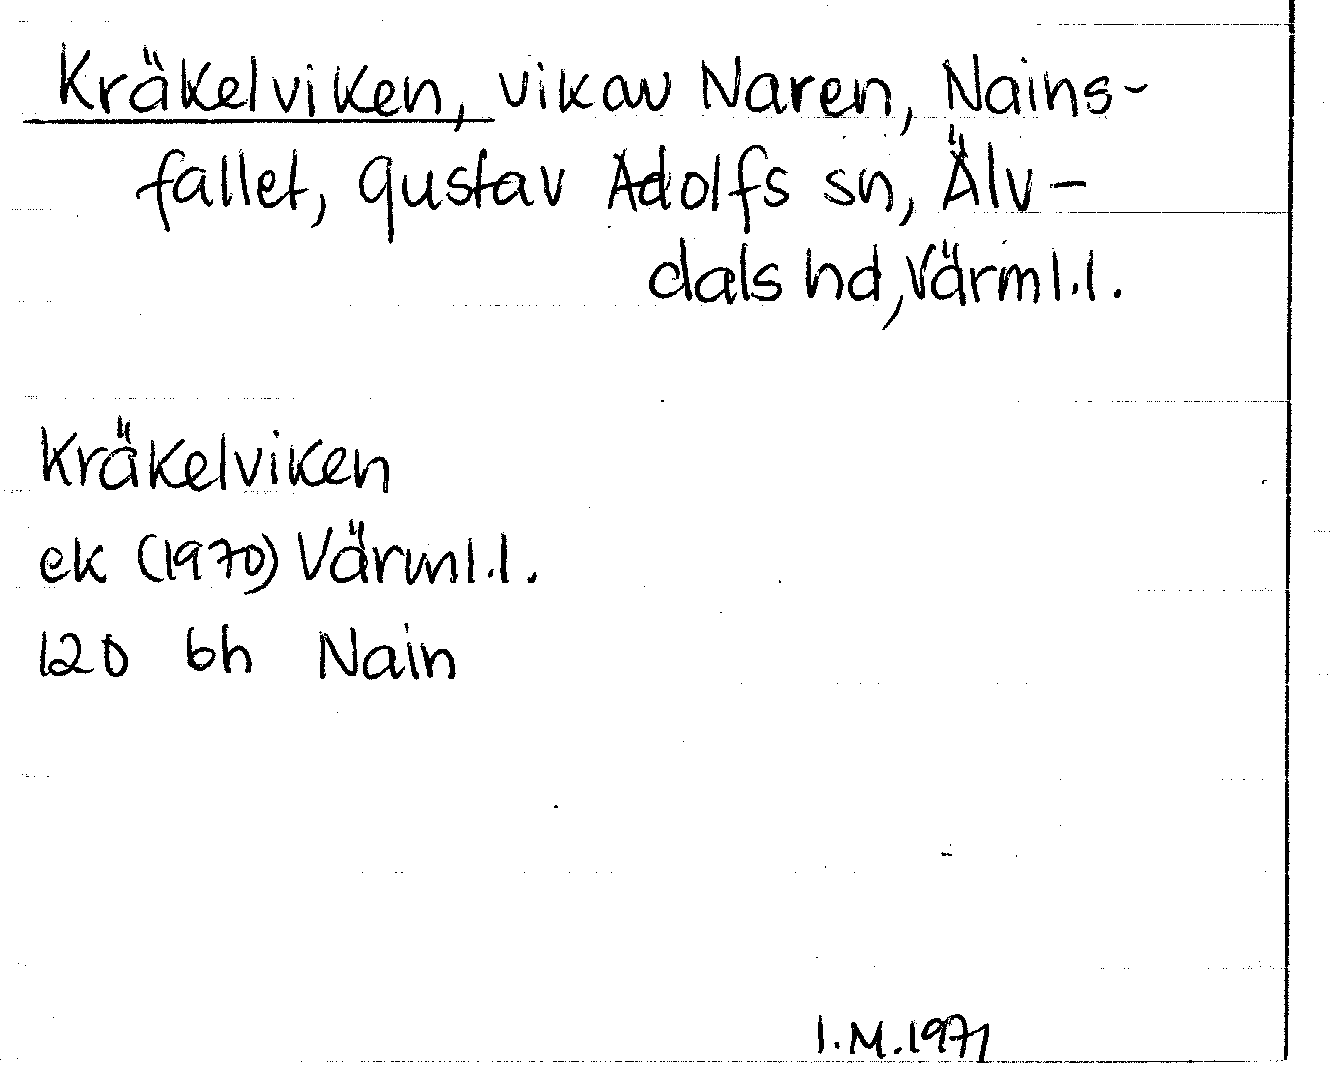 Kräkelviken, vik av Naren, Nains-
fallet, Gustav Adolfs sn, Älv-
dals hd, Värml.l.
Kräkelviken
ek (1970) Värml.l.
12D 6h Nain
I.M.1971